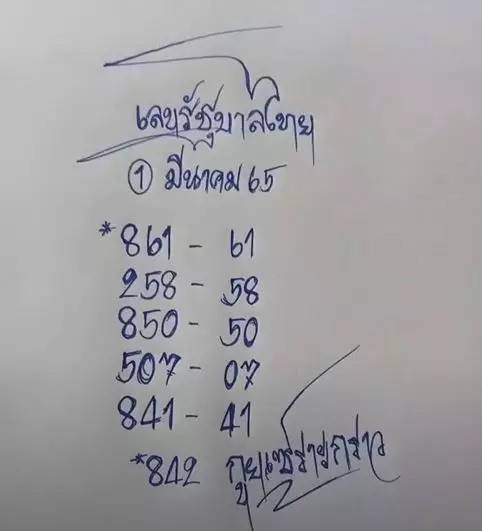 เลขรัฐบาลไทย
① มีนาคม 65
*861 - 61
258 - 58
850 - 50
507 - 07
841 - 41
*842